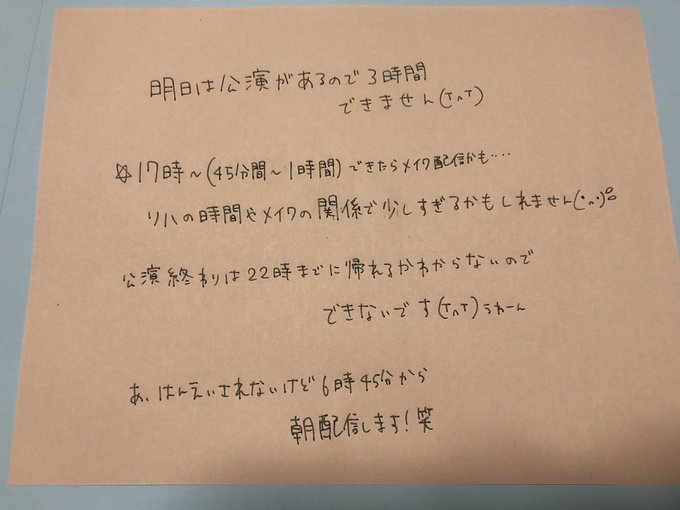 明日は公演があるので3時間
できません(T∩T)
☆17時〜(45分間〜1時間)できたらメイク配信かも....
リハの時間やメイクの関係で少しすぎるかもしれません(・∩・)
公演終わりは22時までに帰れるかわからないので
できないです(T∩T)うわーん
あ、はんえいされないけど6時45分から
朝配信します!笑